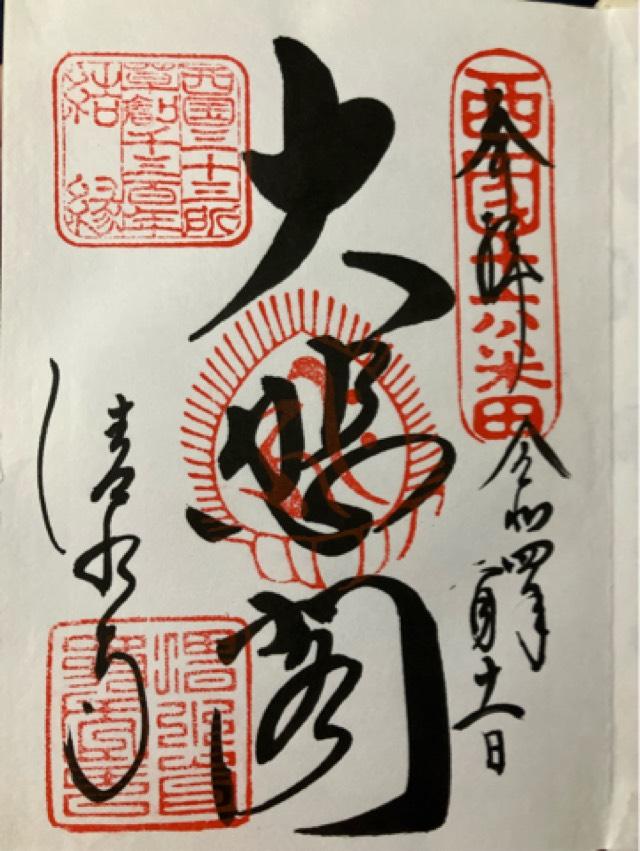 西国十六番
奉拝
令和四年二月十一日
大悲閣
西国三十三所
草創千三百年
結縁
清水寺